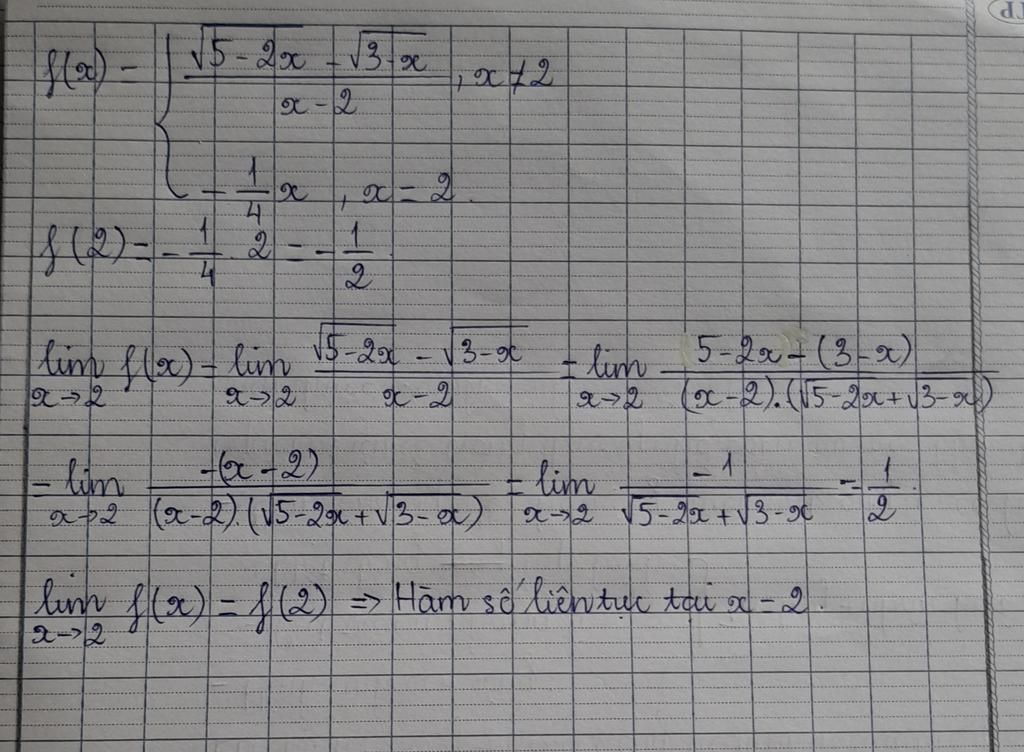 f(x) = { (√(5-2x) - √(3-x)) / (x-2) , x ≠ 2
-1/4 x , x = 2.
f(2) = -1/4 . 2 = -1/2
lim x→2 f(x) = lim x→2 (√(5-2x) - √(3-x)) / (x-2) = lim x→2 (5-2x-(3-x)) / ((x-2).(√(5-2x)+√(3-x)))
= lim x→2 -(x-2) / ((x-2).(√(5-2x)+√(3-x))) = lim x→2 -1 / (√(5-2x)+√(3-x)) = -1/2.
lim x→2 f(x) = f(2) => Hàm số liên tục tại x = 2.